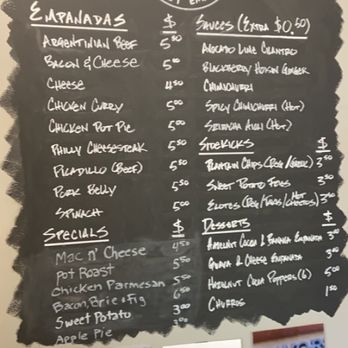 EMPANADAS $
ARGENTINIAN BEEF 5⁵⁰
BACON & CHEESE 5⁰⁰
CHEESE 4⁵⁰
CHICKEN CURRY 5⁰⁰
CHICKEN POT PIE 5⁰⁰
PHILLY CHEESESTEAK 5⁵⁰
PICADILLO (BEEF) 5⁵⁰
PORK BELLY 5⁵⁰
SPINACH 5⁰⁰
SPECIALS $
MAC N' CHEESE 4⁵⁰
POT ROAST 5⁵⁰
CHICKEN PARMESAN 5⁵⁰
BACON, BRIE & FIG 6⁵⁰
SWEET POTATO 3⁰⁰
APPLE PIE
SAUCES (EXTRA $0.50)
AVOCADO LIME CILANTRO
BLACKBERRY HOISIN GINGER
CHIMICHURRI
SPICY CHIMICHURRI (HOT)
SRIRACHA AIOLI (HOT)
SIDEKICKS $
PLANTAIN CHIPS (REG/GARLIC) 3⁵⁰
SWEET POTATO FRIES 3⁵⁰
ELOTES (REG/TAKIS/HOT CHEETOS) 3⁵⁰
DESSERTS $
HAZELNUT COCOA & BANANA EMPANADA 3⁰⁰
GUAVA & CHEESE EMPANADA 3⁰⁰
HAZELNUT COCOA POPPERS (6) 5⁰⁰
CHURROS 1⁵⁰